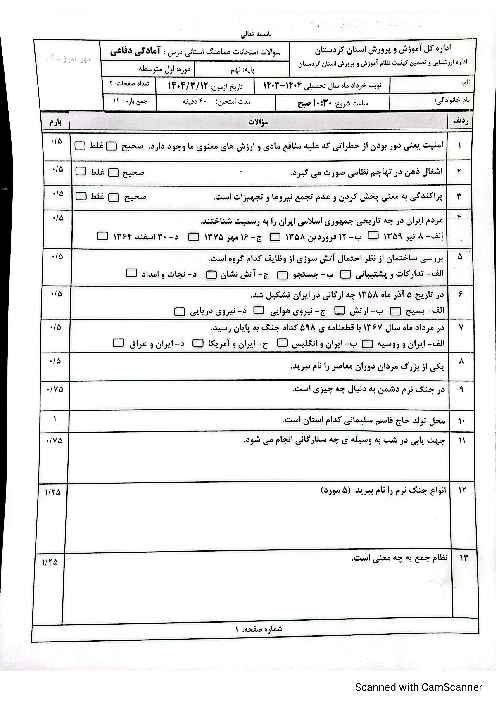 باسمه تعالی
اداره کل آموزش و پرورش استان کردستان
اداره ارزشیابی و تضمین کیفیت نظام آموزش و پرورش استان کردستان
سوالات امتحانات هماهنگ استانی درس : آمادگی دفاعی
پایه: نهم دوره: اول متوسطه
مهر آموزشگاه
نام: نوبت خرداد ماه سال تحصیلی ۱۴۰۴-۱۴۰۳ تاریخ آزمون: ۱۴۰۴/۳/۱۲ تعداد صفحات: ۲
نام خانوادگی: ساعت شروع: ۱۰:۳۰ صبح مدت امتحان: ۴۰ دقیقه جمع بارم: ۱۲
ردیف سؤالات بارم
۱ امنیت یعنی دور بودن از خطراتی که علیه منافع مادی و ارزش های معنوی ما وجود دارد. صحیح □ غلط □ ۰/۵
۲ اشغال ذهن در تهاجم نظامی صورت می گیرد. صحیح □ غلط □ ۰/۵
۳ پراکندگی به معنی پخش کردن و عدم تجمع نیروها و تجهیزات است. صحیح □ غلط □ ۰/۵
۴ مردم ایران در چه تاریخی جمهوری اسلامی ایران را به رسمیت شناختند. ۰/۵
الف- ۸ تیر ۱۳۵۹ □ ب- ۱۲ فروردین ۱۳۵۸ □ ج- ۱۶ مهر ۱۳۷۵ □ د- ۳۰ اسفند ۱۳۶۴ □
۵ بررسی ساختمان از نظر احتمال آتش سوزی از وظایف کدام گروه است. ۰/۵
الف- تدارکات و پشتیبانی □ ب- جستجو □ ج- آتش نشان □ د- نجات و امداد □
۶ در تاریخ ۵ آذر ماه ۱۳۵۸ چه ارگانی در ایران تشکیل شد. ۰/۵
الف- بسیج □ ب- ارتش □ ج- نیروی هوایی □ د- نیروی دریایی □
۷ در مرداد ماه سال ۱۳۶۷ با قطعنامه ی ۵۹۸ کدام جنگ به پایان رسید. ۰/۵
الف- ایران و روسیه □ ب- ایران و انگلیس □ ج- ایران و آمریکا □ د- ایران و عراق □
۸ یکی از بزرگ مردان دوران معاصر را نام ببرید. ۰/۵
۹ در جنگ نرم دشمن به دنبال چه چیزی است. ۰/۷۵
۱۰ محل تولد حاج قاسم سلیمانی کدام استان است. ۱
۱۱ جهت یابی در شب به وسیله ی چه ستارگانی انجام می شود. ۰/۷۵
۱۲ انواع جنگ نرم را نام ببرید (۵ مورد) ۱/۲۵
۱۳ نظام جمع به چه معنی است. ۱/۲۵
شماره صفحه: ۱
Scanned with CamScanner